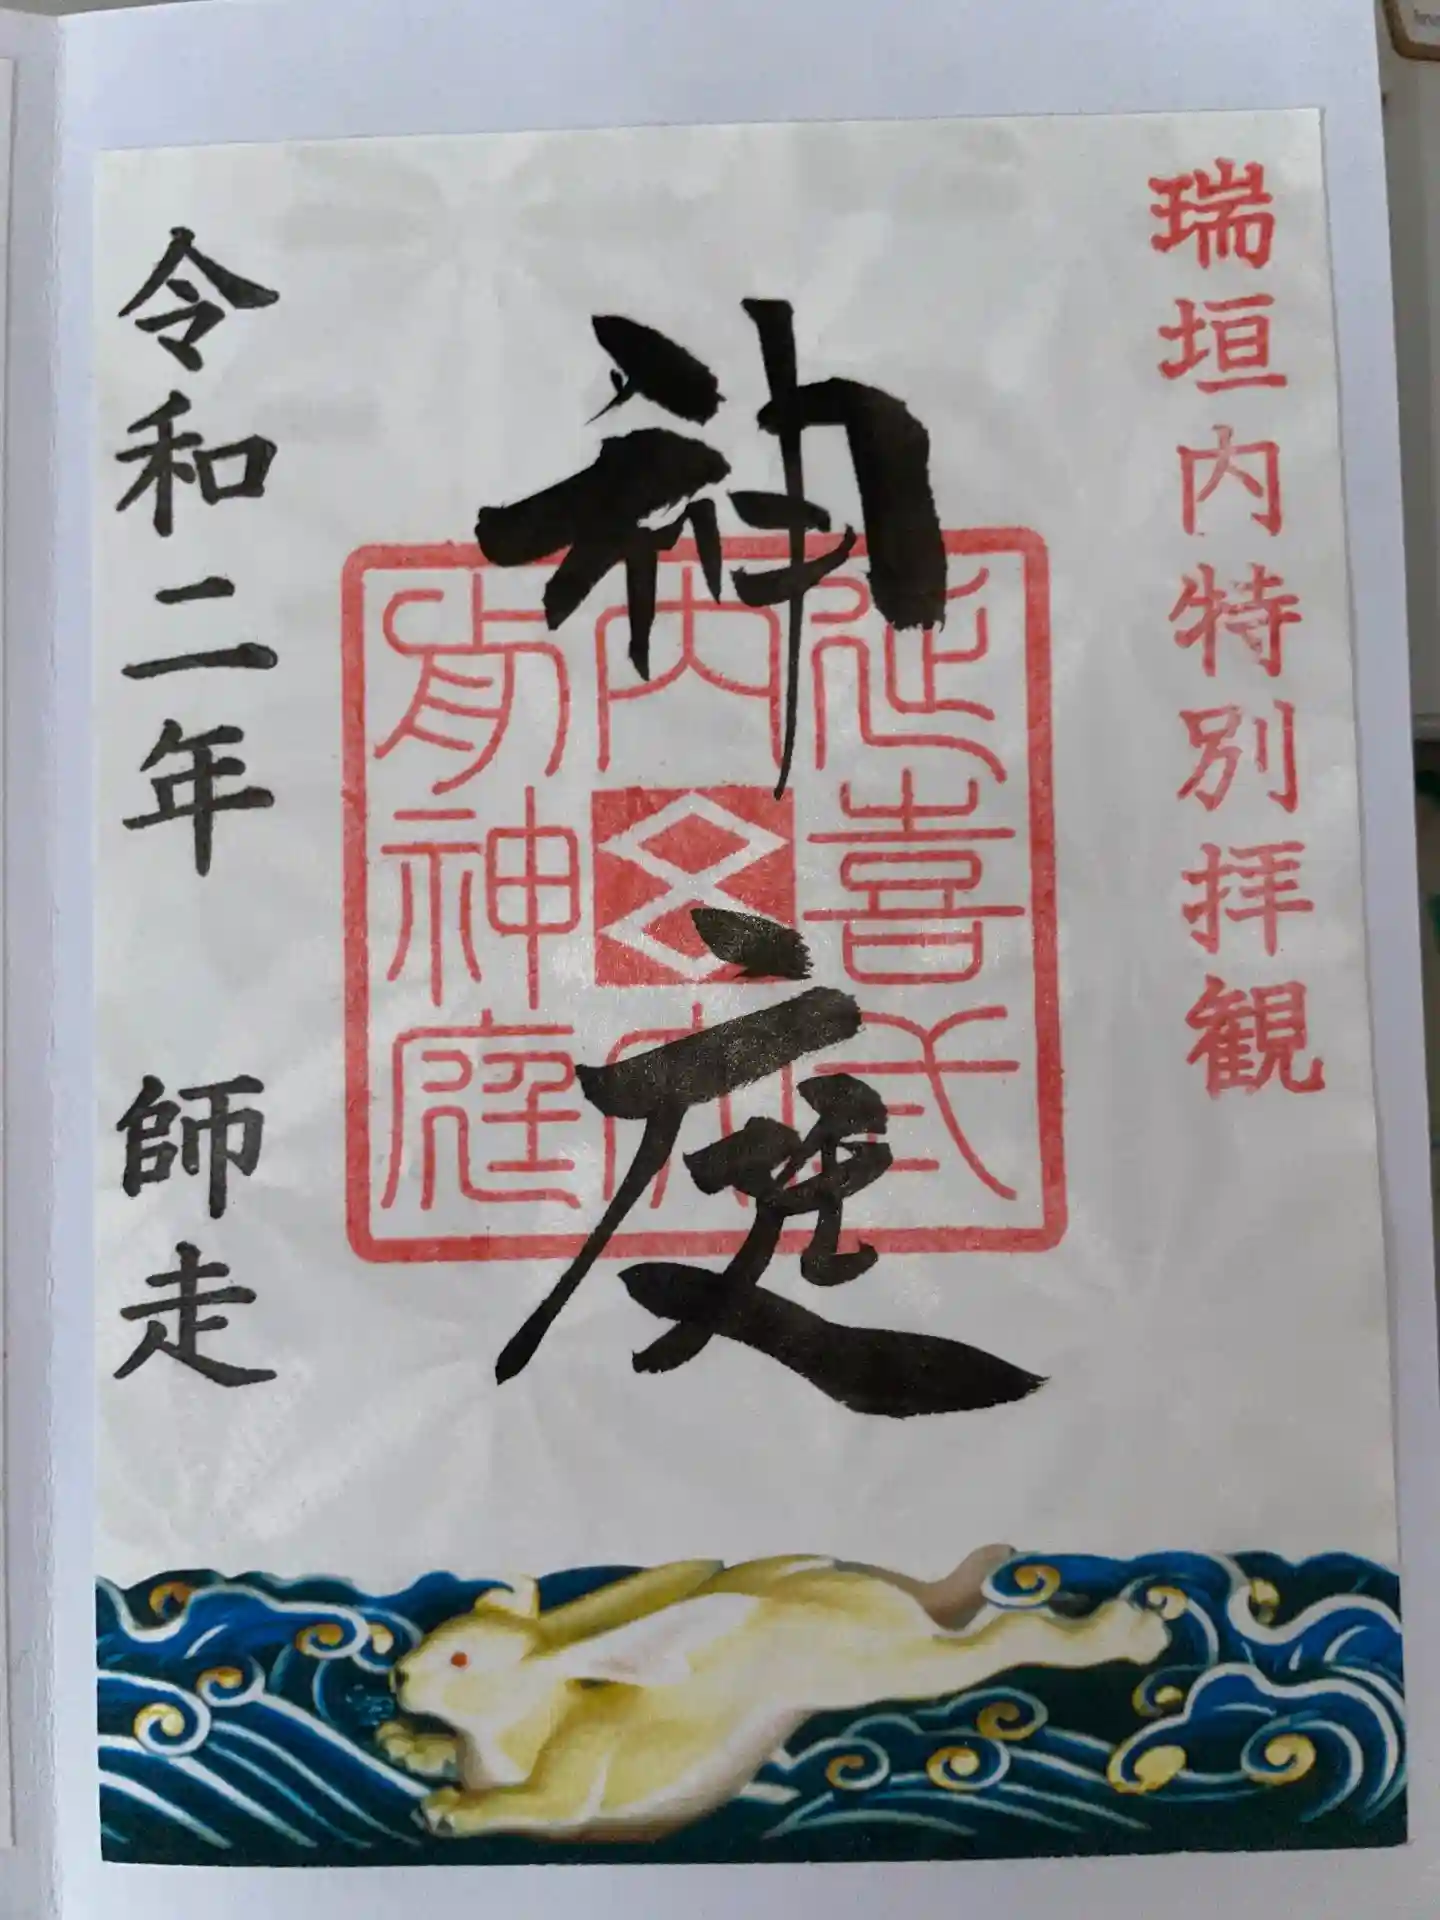 瑞垣内特別拝観
神庭
延喜式
内大
前神庭
令和二年 師走